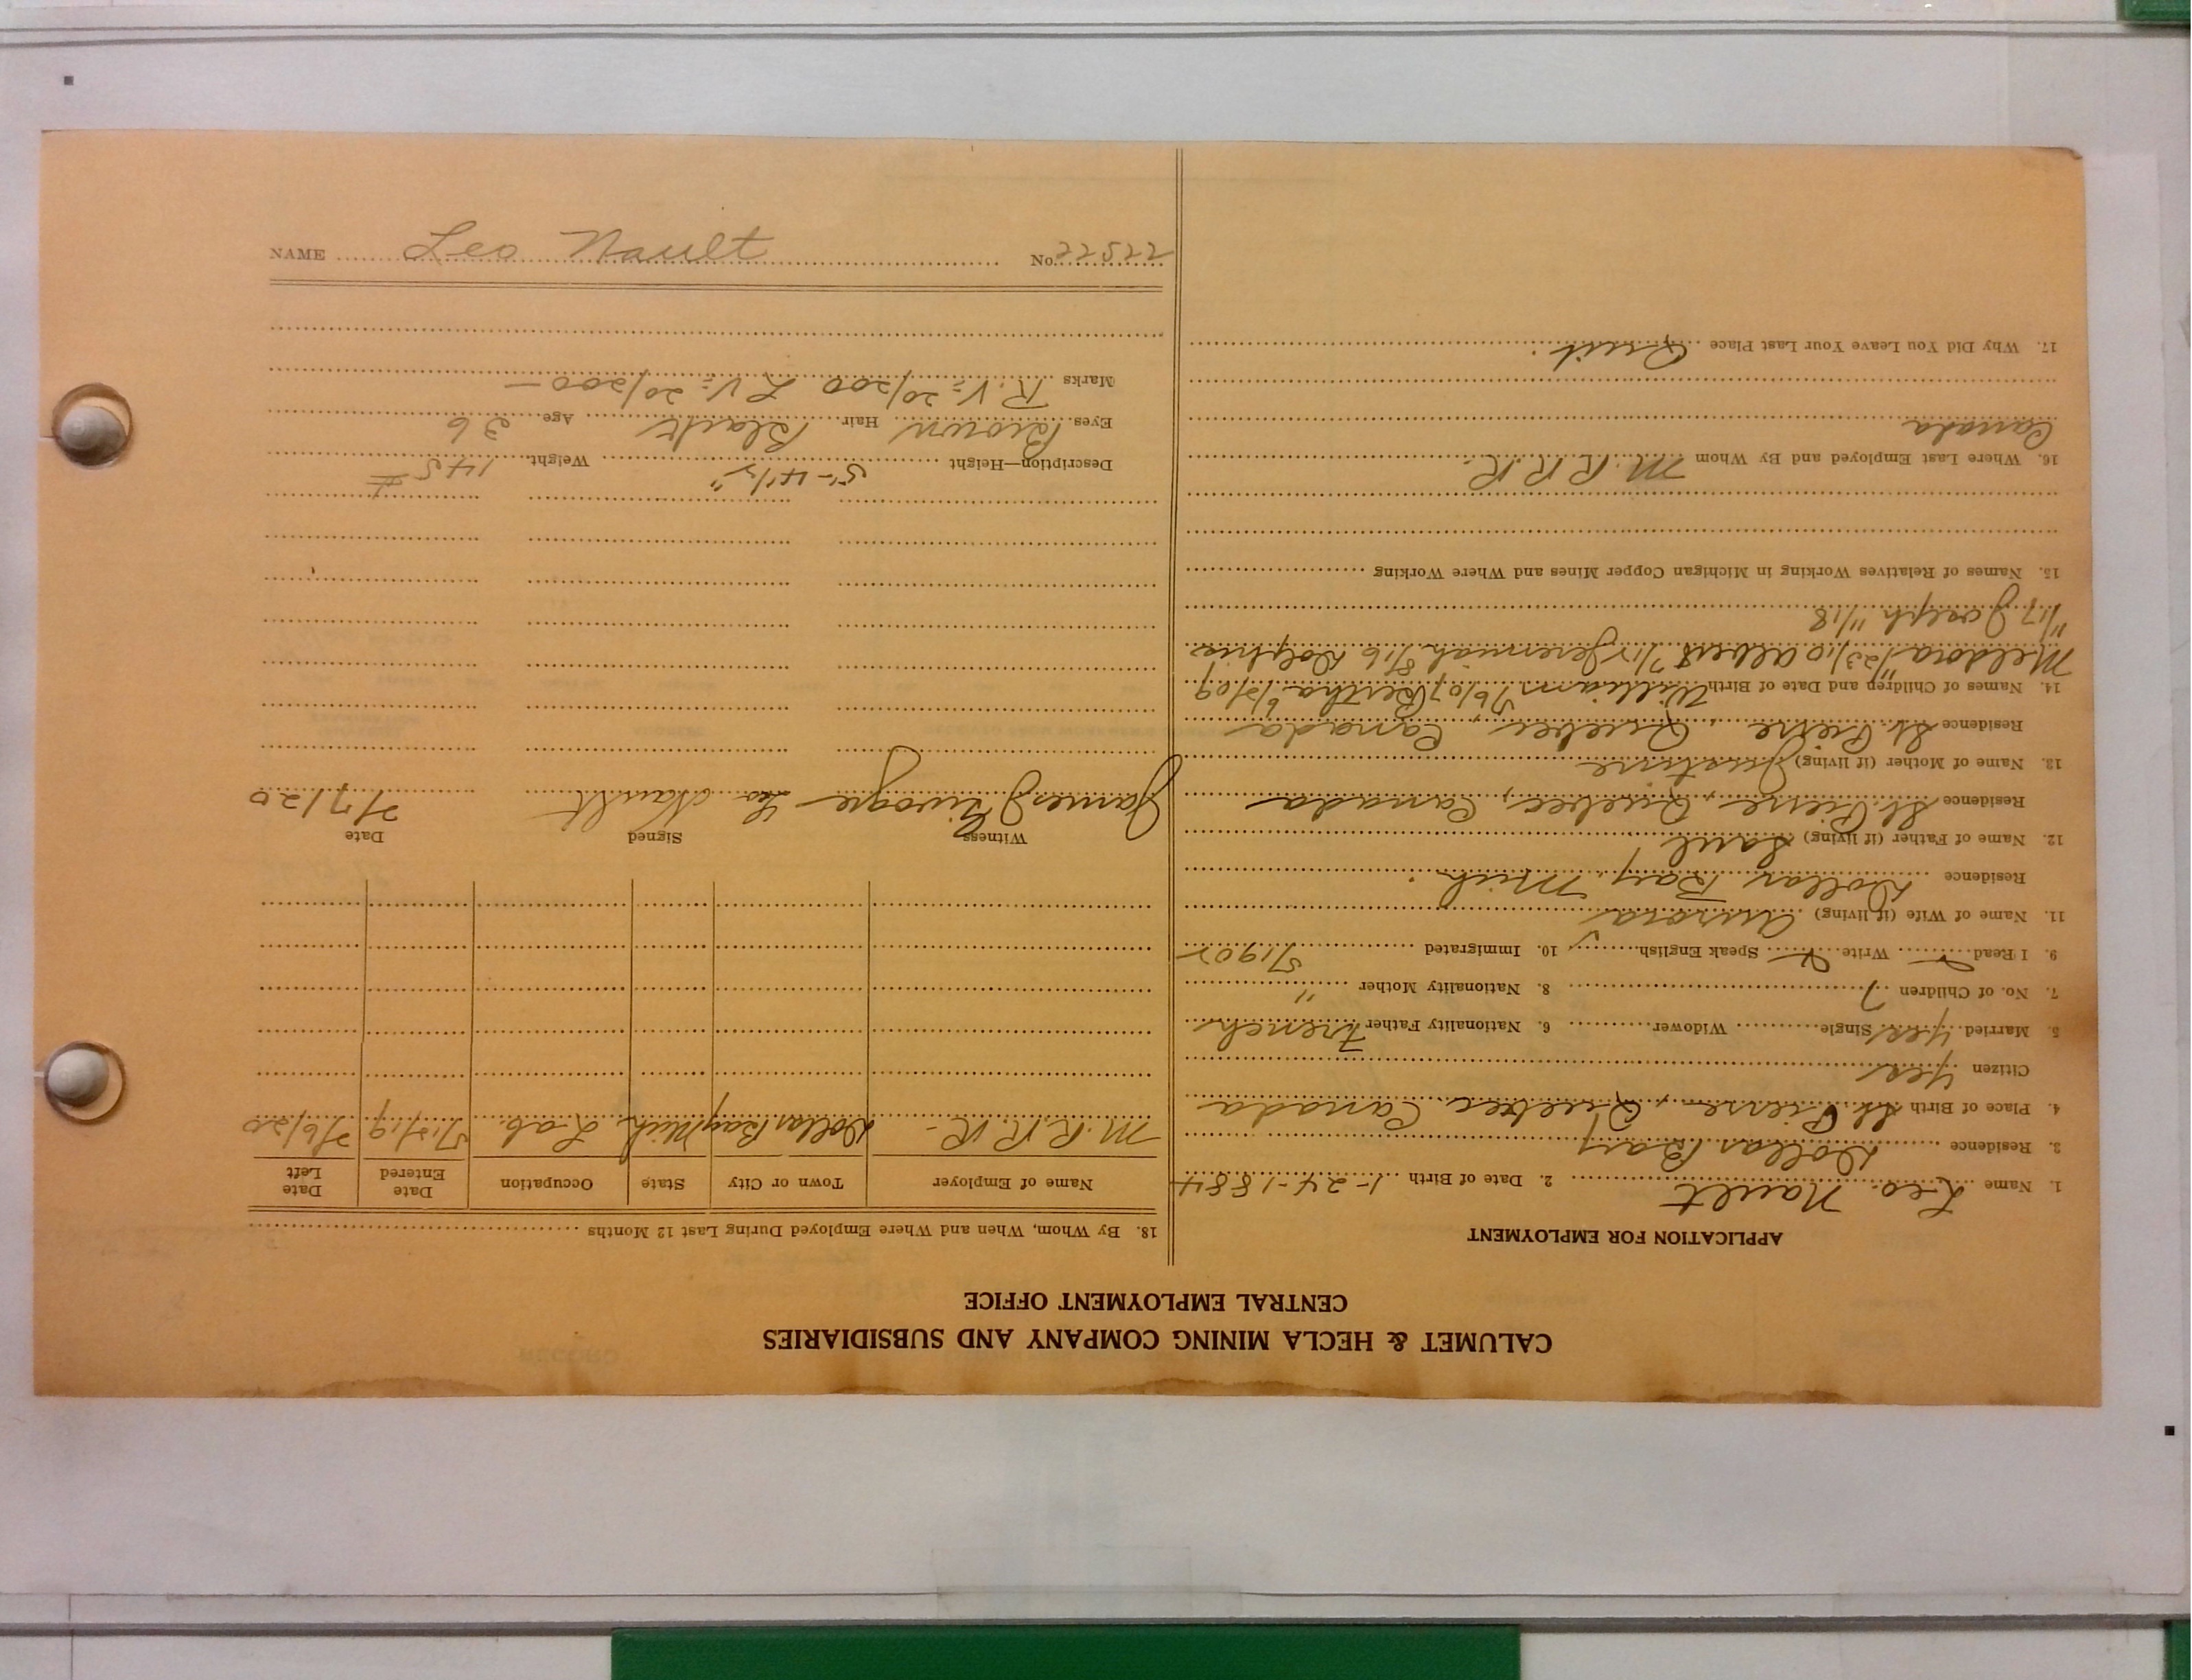 CALUMET & HECLA MINING COMPANY AND SUBSIDIARIES
CENTRAL EMPLOYMENT OFFICE
APPLICATION FOR EMPLOYMENT
1. Name Leo Nault 2. Date of Birth 1-24-1884
3. Residence Dollar Bay
4. Place of Birth St. Pierre, Quebec Canada
Citizen Yes
5. Married Yes Single Widower 6. Nationality Father French
7. No. of Children 7 8. Nationality Mother "
9. I Read Write Speak English ✓ 10. Immigrated 5/1902
11. Name of Wife (if living) Aurora
Residence Dollar Bay, Mich.
12. Name of Father (if living) Saul
Residence St. Pierre, Quebec, Canada
13. Name of Mother (if living) Justine
Residence St. Pierre, Quebec, Canada
14. Names of Children and Date of Birth William Bertha
Meldora Albert Jeremiah 8/16
11/17 Joseph 11/18
15. Names of Relatives Working in Michigan Copper Mines and Where Working
16. Where Last Employed and By Whom M. R. R. R.
Canada
17. Why Did You Leave Your Last Place Quit.
18. By Whom, When and Where Employed During Last 12 Months
Name of Employer Town or City State Occupation Date Entered Date Left
M. R. R. R. Dollar Bay Mich. Lab. 2/6/20
Witness Signed Date
James Leo Nault 2/7/20
Description—Height 5'-4 1/2" Weight 145 #
Eyes Brown Hair Black Age 36
Marks R. V= 20/200 L V= 20/200 —
NAME Leo Nault No. 22522